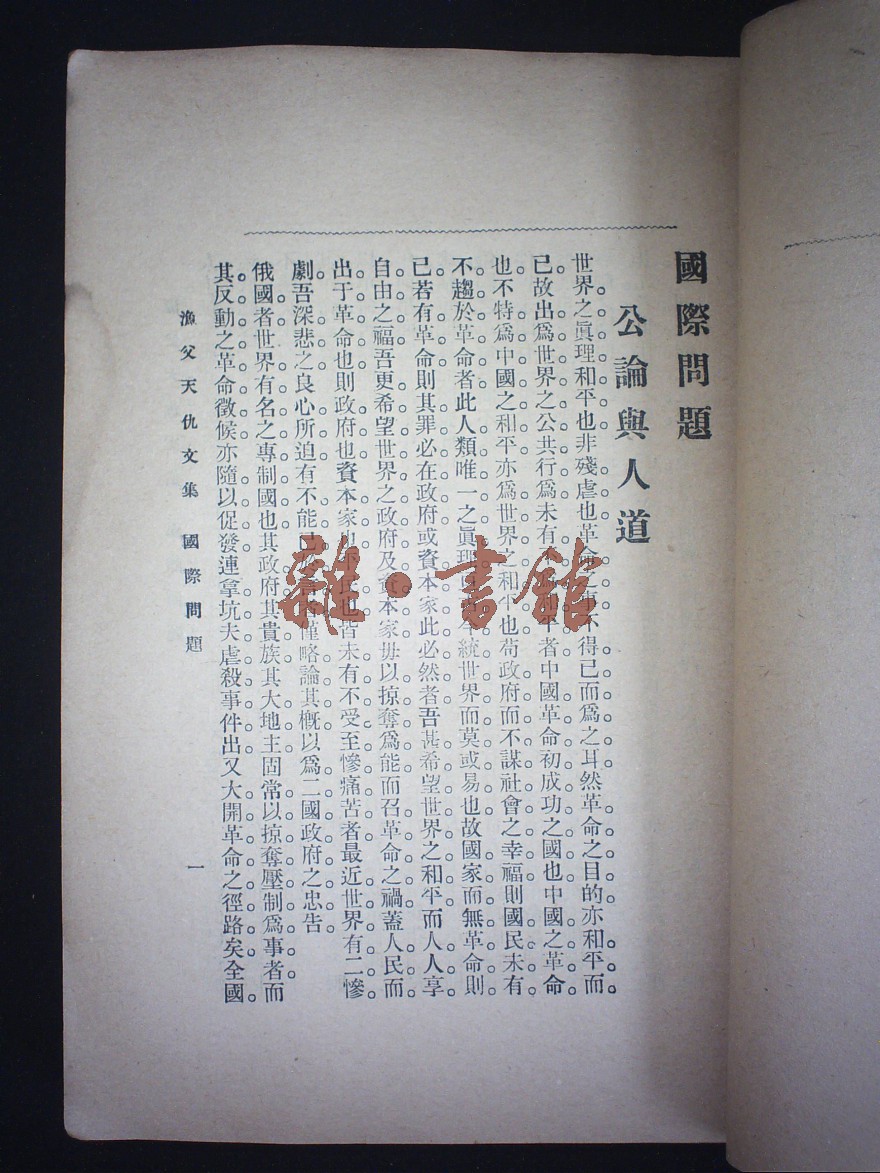 國際問題
公論與人道
世界之眞理和平也非殘虐也革命之事不得已而爲之耳然革命之目的亦和平而
已故出爲世界之公共行爲未有 者中國革命初成功之國也中國之革命
也不特爲中國之和平亦爲世界之和平也苟政府而不謀社會之幸福則國民未有
不趨於革命者此人類唯一之眞理 統世界而莫或易也故國家而無革命則
已若有革命則其罪必在政府或資本家此必然者吾甚希望世界之和平而人人享
自由之福吾更希望世界之政府及資本家毋以掠奪爲能而召革命之禍蓋人民而
出于革命也則政府也資本家也 也皆未有不受至慘痛苦者最近世界有二慘
劇吾深悲之良心所迫有不能已 僅略論其槪以爲二國政府之忠告
俄國者世界有名之專制國也其政府其貴族其大地主固常以掠奪壓制爲事者而
其反動之革命徵候亦隨以促發連拿坑夫虐殺事件出又大開革命之徑路矣全國
漁父天仇文集 國際問題 一
雜·書館